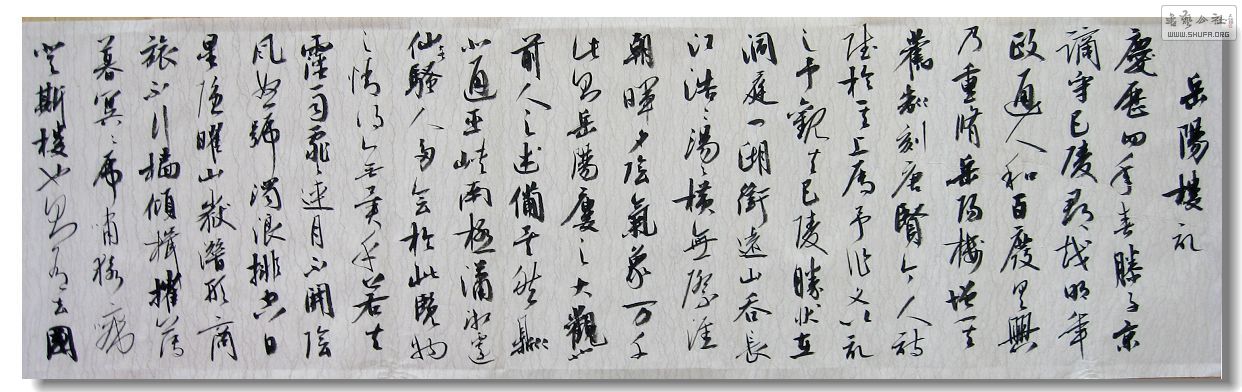 岳陽樓記
慶歷四年春滕子京
謫守巴陵郡越明年
政通人和百廢具興
乃重脩岳陽樓增其
舊制刻唐賢今人詩
賦於其上屬予作文以記
之予觀夫巴陵勝狀在
洞庭一湖銜遠山吞長
江浩浩湯湯橫無際涯
朝暉夕陰氣象万千
此則岳陽樓之大觀也
前人之述備矣然則
北通巫峽南極瀟湘遷
騷人多會於此覽物
之情得無異乎若夫
霪雨霏霏連月不開陰
風怒號濁浪排空日
星隱曜山嶽潛形商
旅不行檣傾楫摧薄
暮冥冥虎嘯猿啼
登斯樓也則有去國
書藝公社
WWW.SHUFA.ORG